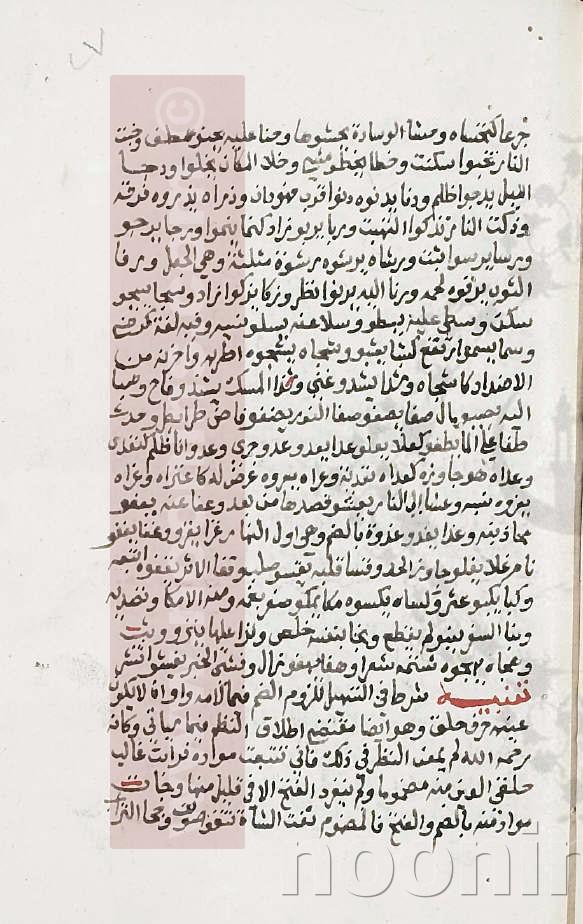 جرعا كتحساه وحشا الوسادة يحشوها وحنا عليه يحنو عطف وخبت
النار تخبوا سكنت وخطا يخطو مشى وخلا المكان يخلوا ودجا
الليل يدجوا ظلم ودنا يدنوه دنوا قرب وذراه يذروه فرقه
وذكت النار تذكوا التهبت وربا يربو زاد كنما ينموا ورجا يرجو
ورسا يرسوا ثبت ورشاه يرشوه رشوة مثلثة وهي الجعل ورفا
الثوب يرفوه لحمه ورنا اليه يرنوا نظر وزكا يزكوا زاد وسجا يسجو
سكن وسطى عليه يسطو وسلا عنه يسلو نسيه وفيه لغة كرضي
وسما يسموا رتفع كشا يشبو وشجاه يشجوه اطربه واحزنه من
الاضداد كاشجاه وشدا يشدو غنى وشذا المسك يشذو فاح وصبا
اليه يصبو مال صفا يصفو وضفا الثوب يضفو فاض
طفا على الما يطفو كعلا يعلو عدا يعدو عدو جرى وعدوانا ظلم كتعدى
وعداه هوجاوزه كعداه تعدية وعراه يعروه عرض له كاعتراه وعزاه
يعزوه نسبه وعشا الى النار يعشو قصدها من بعد وعفا عنه يعفو
محا ذنبه وغدا يغدو غدوة بالضم وهي اول النهار غزا يغزو وغفا يغفو
نام غلا يغلو جاوز الحد وقسا قلبه يقسو صلب وقفا الاثر يقفوه اتبعه
وكبا يكبو عثر وكساه يكسوه مكا يمكو صفر بفمه ومنه الا مكاء وتصدية
ونبا السيف ينبو لم يقطع ونجا نجاة خلص ونزا عليها ينزو وثب
وهجاه يهجوه شتمه شعرا وهفا يهفو زال
تنبيه شرط في التسهيل للزوم الضم فيما لامه واو ان لا يكون
عينه حرف حلق وهو ايضا مقتضى اطلاق الناظم فيما مياتي وكانه
رحمه الله لم يمعن النظر في ذلك فاني تتبعت مواده فرايت غالب
حلقي العين منه مضموما ولم ينفرد الفتح الا في قليل منها وجات
مواد منه بالضم والفتح فالمضموم ثغت الشاة تثغو صوتت ومحا التراب